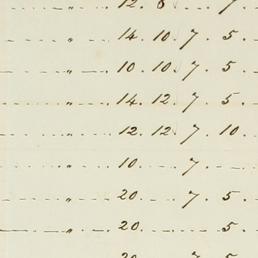 " 14. 10. 7. 5.
" 10. 10. 7. 5.
" 14. 12. 7. 5.
" 12. 12. 7. 10.
" 10. 7.
" 20. 7. 5.
" 20. 5.